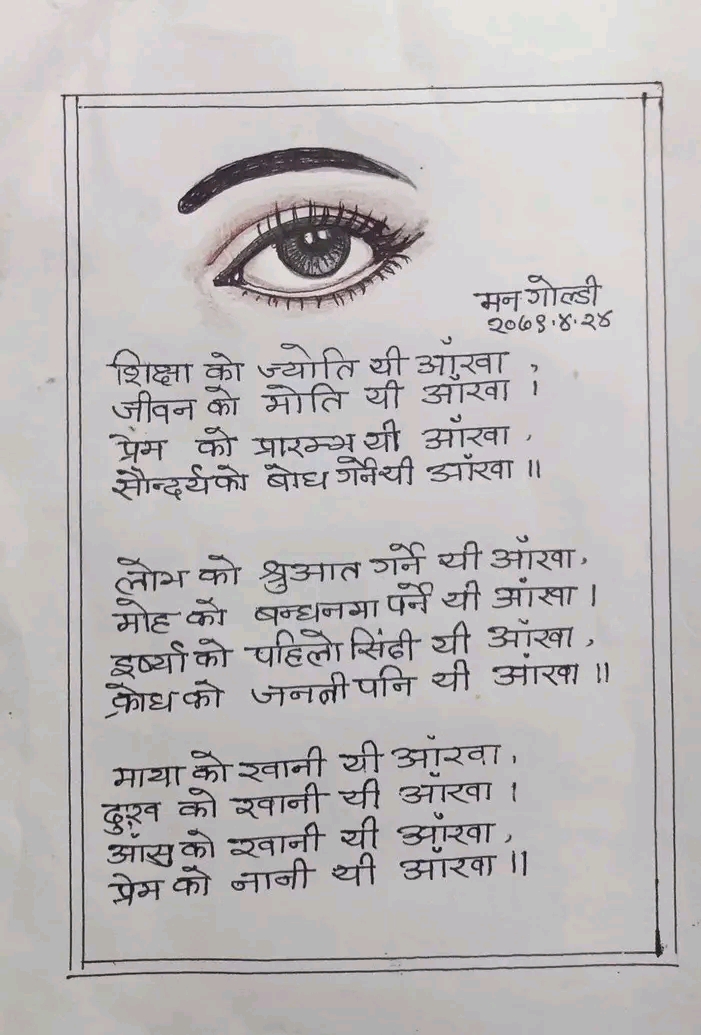 मन गोल्डी
२०७९.४.२४
शिक्षा को ज्योति यी आँखा ,
जीवन को मोति यी आँखा ।
प्रेम को प्रारम्भ यी आँखा ,
सौन्दर्यको बोध गर्नेयी आँखा ॥
लोभ को श्रुआत गर्ने यी आँखा ,
मोह को बन्धनमा पर्ने यी आंखा ।
इर्ष्या को पहिलो सिंढी यी आँखा ,
क्रोध को जननी पनि यी आंखा ॥
माया को खानी यी आँखा ,
दुःख को खानी यी आँखा ।
आँसु को खानी यी आँखा ,
प्रेम को नानी यी आँखा ॥